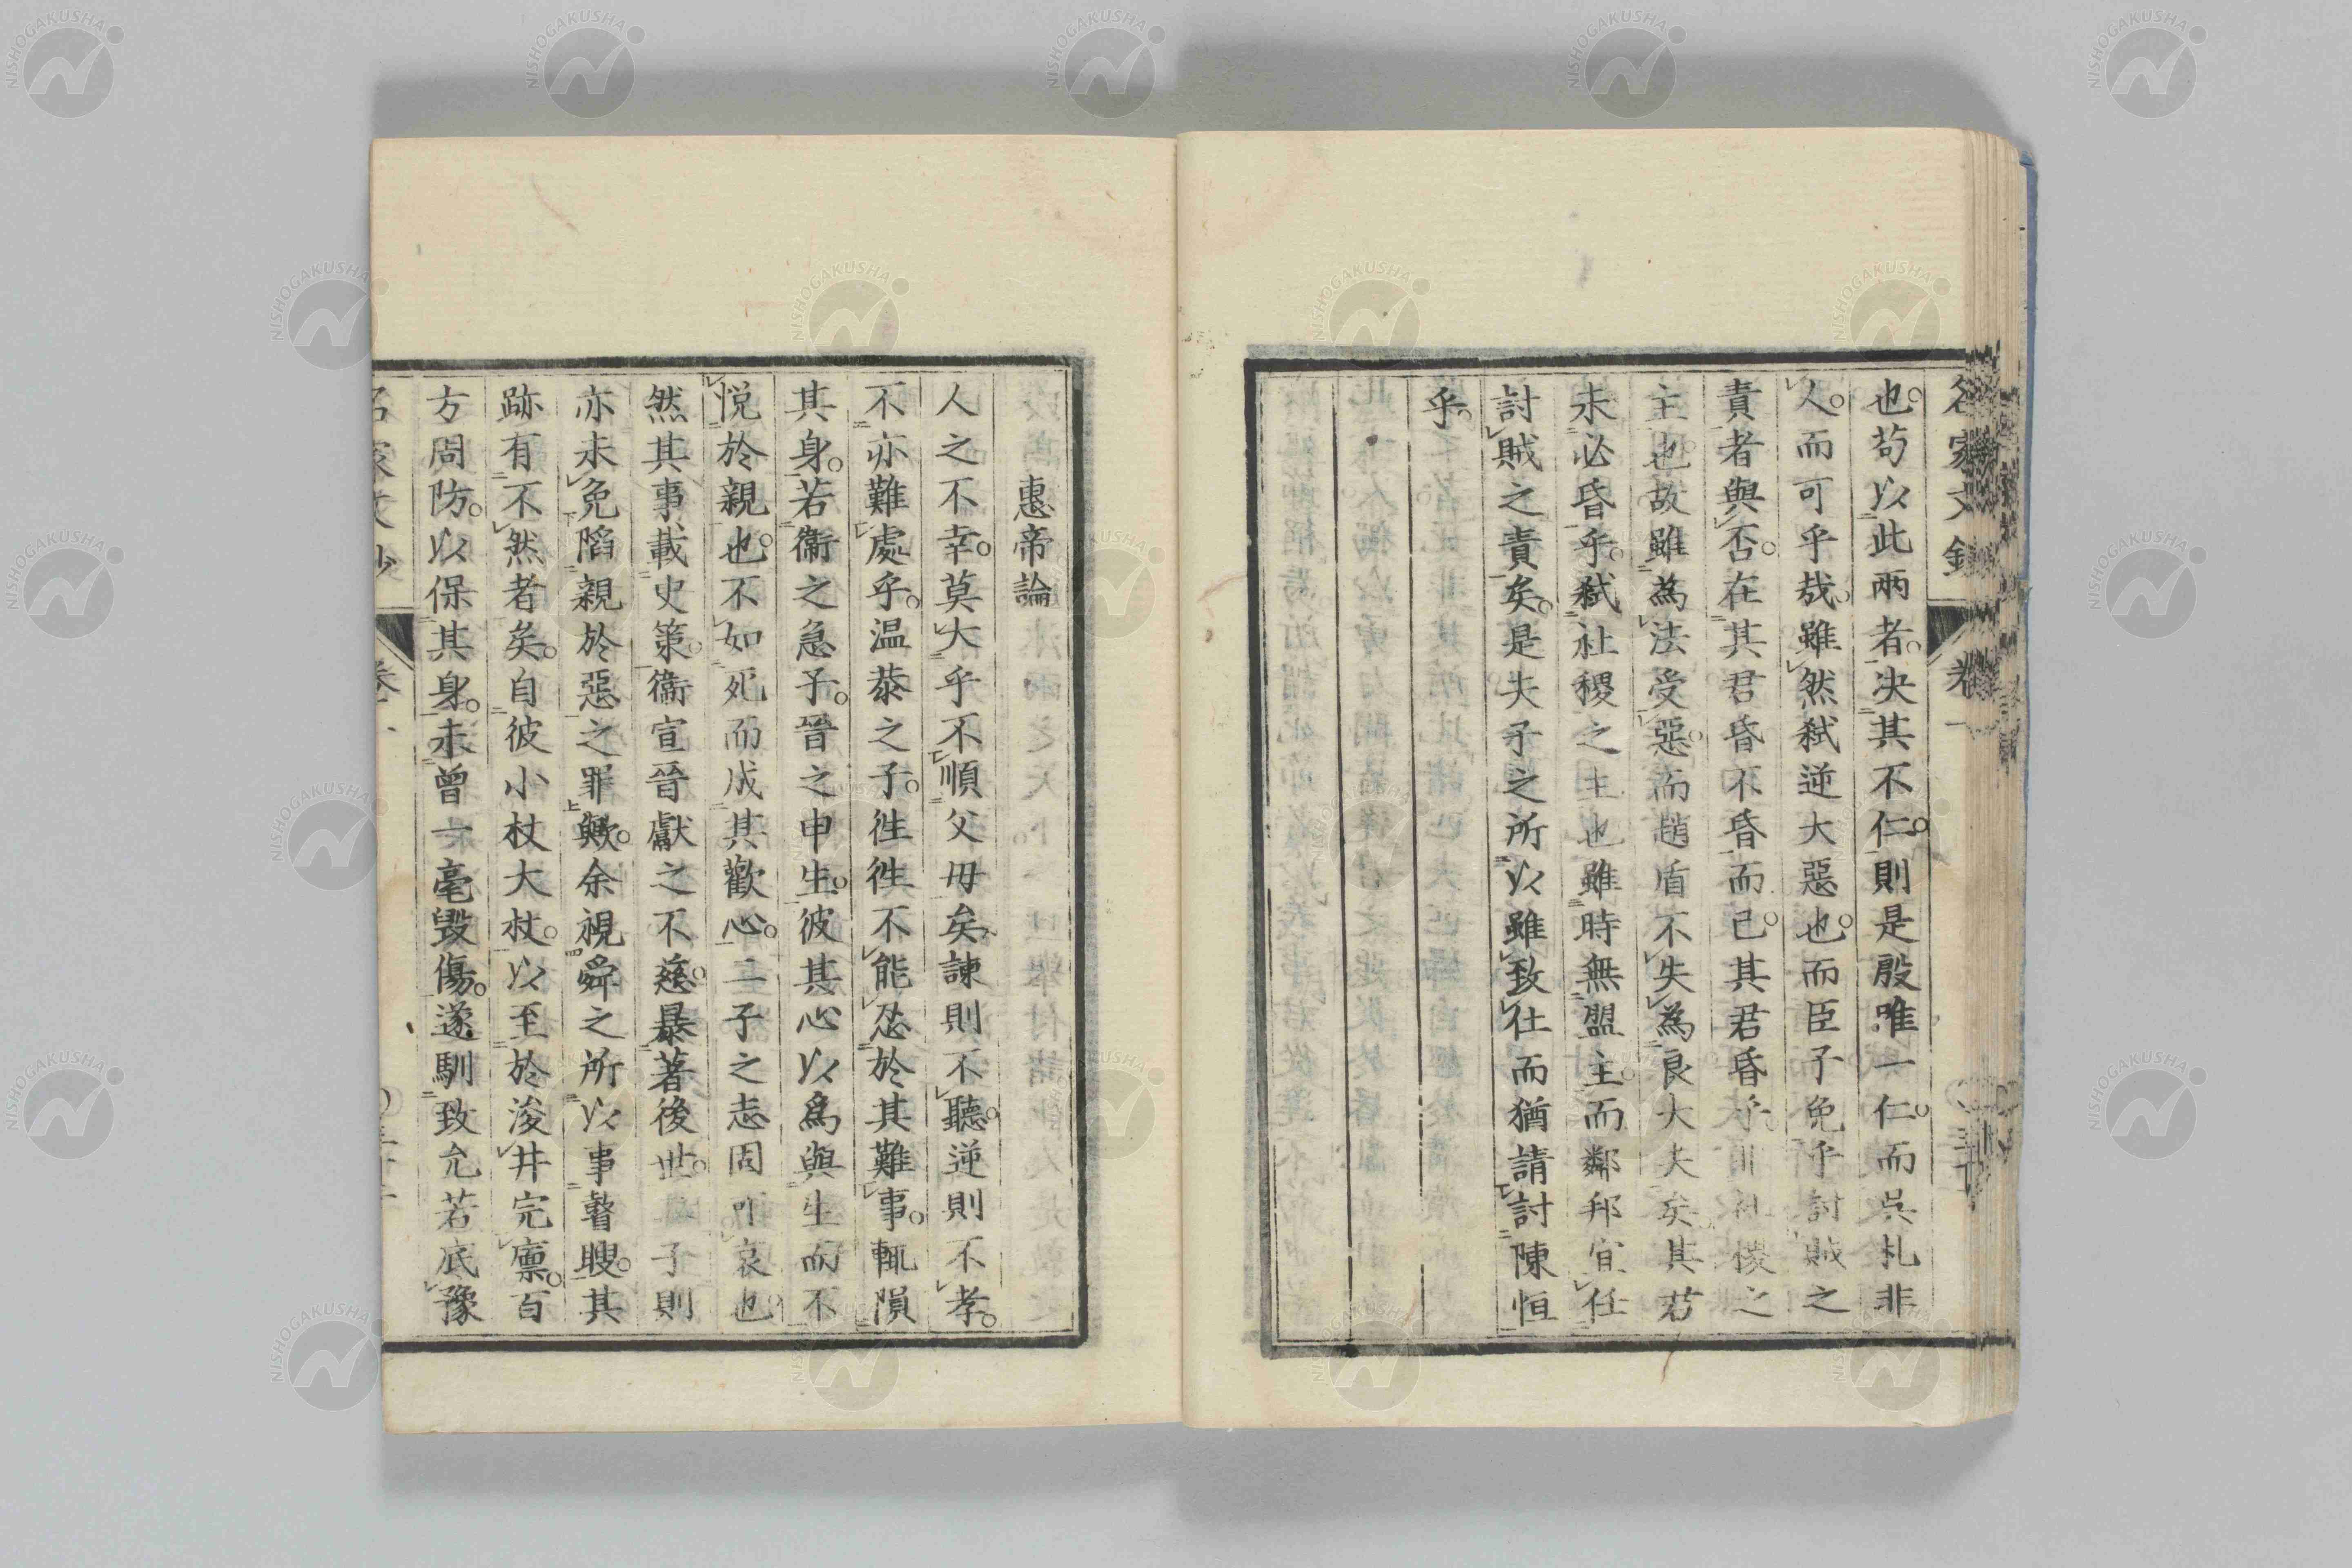 名家文鈔 卷一
也。苟以此兩者。决其不仁。則是殷唯一仁。而吳札非
人。而可乎哉。雖然弑逆大惡也。而臣子免乎討賊之
責者與否。在其君昏不昏而已。其君昏乎。社稷之
主也。故雖為法受惡。而趙盾不失為良大夫矣。其君
未必昏乎。弑社稷之主也雖時無盟主。而鄰邦宜任
討賊之責矣。是夫子之所以雖致仕而猶請討陳恒
乎。
惠帝論
人之不幸。莫大乎不順父母矣。諌則不聽。逆則不孝。
不亦難處乎。温恭之子。徃徃不能忍於其難事。輒隕
其身。若衞之急子。晉之申生。彼其心以爲與生而不
悦於親也。不如死而成其歡心。二子之志固可哀也。
然其事載史策。衞宣晉獻之不慈。暴著後世。二子則
亦未免陷親於惡之罪歟。余視舜之所以事瞽瞍。其
跡有不然者矣。自彼小杖大杖。以至於浚井完廩。百
方周防。以保其身。未曾一毫毁傷。遂馴致允若底豫
名家文鈔 卷一
NISHOGAKUSHA